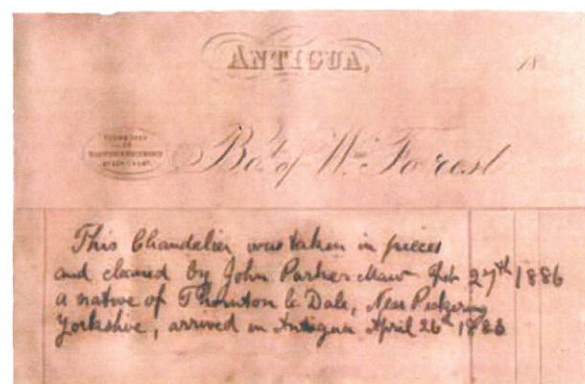 ANTIGUA,
18
Bot. of Wm. Forrest
This Chandelier was taken in pieces
and cleaned by John Parker Maw Feb 27th 1886
a native of Thornton le Dale, Near Pickering
Yorkshire, arrived in Antigua April 26th 1883